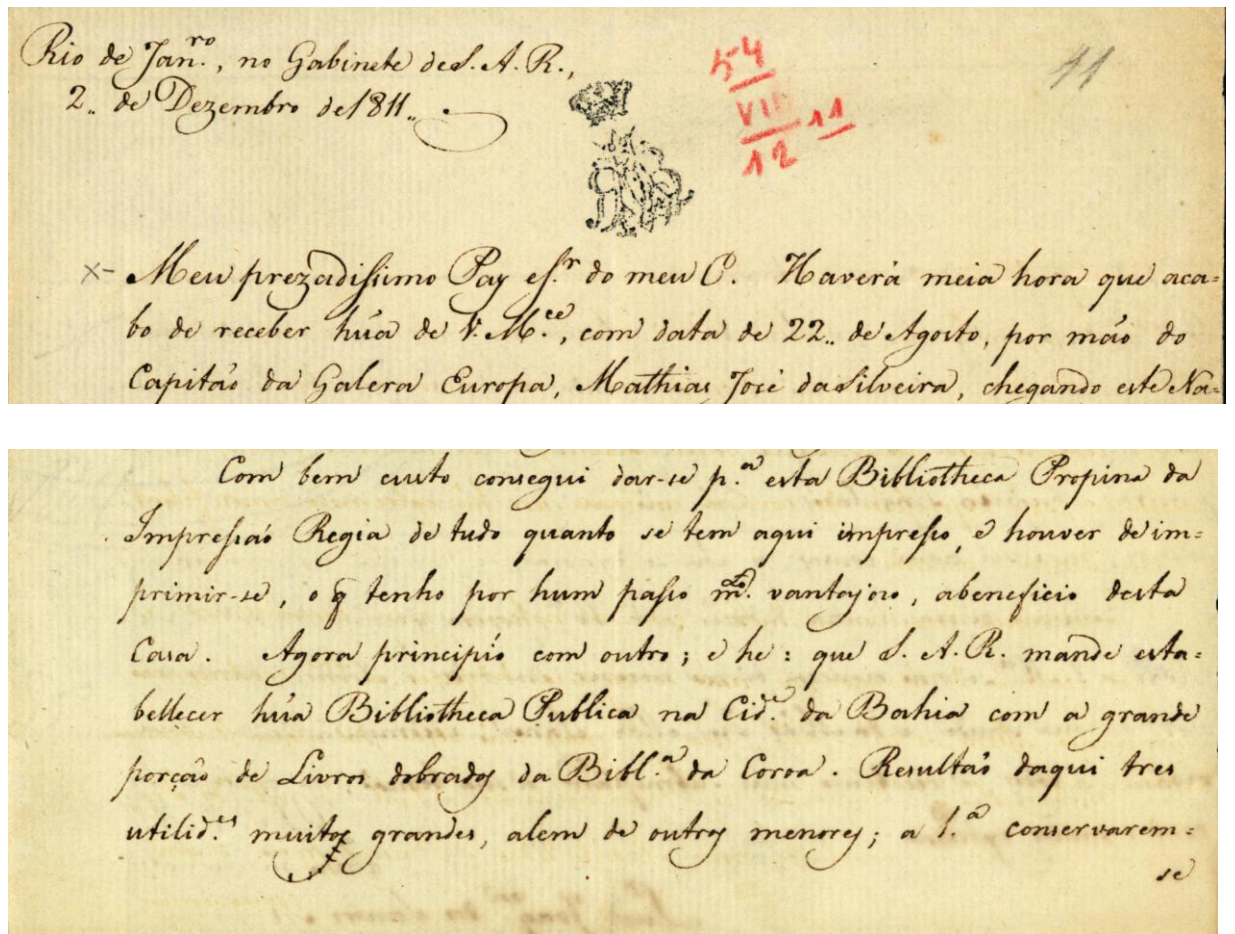 Rio de Jan.ro, no Gabinete de S. A. R.,
2.. de Dezembro de 1811..
54
VII
12
11
11
x- Meu prezadissimo Pay e S.r do meu C. Haverá meia hora que aca=
bo de receber hũa de V. M.ce, com data de 22.. de Agosto, por mão do
Capitão da Galera Europa, Mathias José da Silveira, chegando este Na=
Com bem custo consegui dar-se p.a esta Bibliotheca Propina da
Impressaõ Regia de tudo quanto se tem aqui impresso, e houver de im=
primir-se, o q̃ tenho por hum passo m.to vantajoso, a beneficio desta
Casa. Agora principío com outro; e he: que S. A. R. mande esta=
bellecer hũa Bibliotheca Publica na Cid.e da Bahia com a grande
porção de Livros dobrados da Bibl.a da Coroa. Resultaõ daqui tres
utilid.es muitos grandes, alem de outros menores; a 1.a conservarem=
se